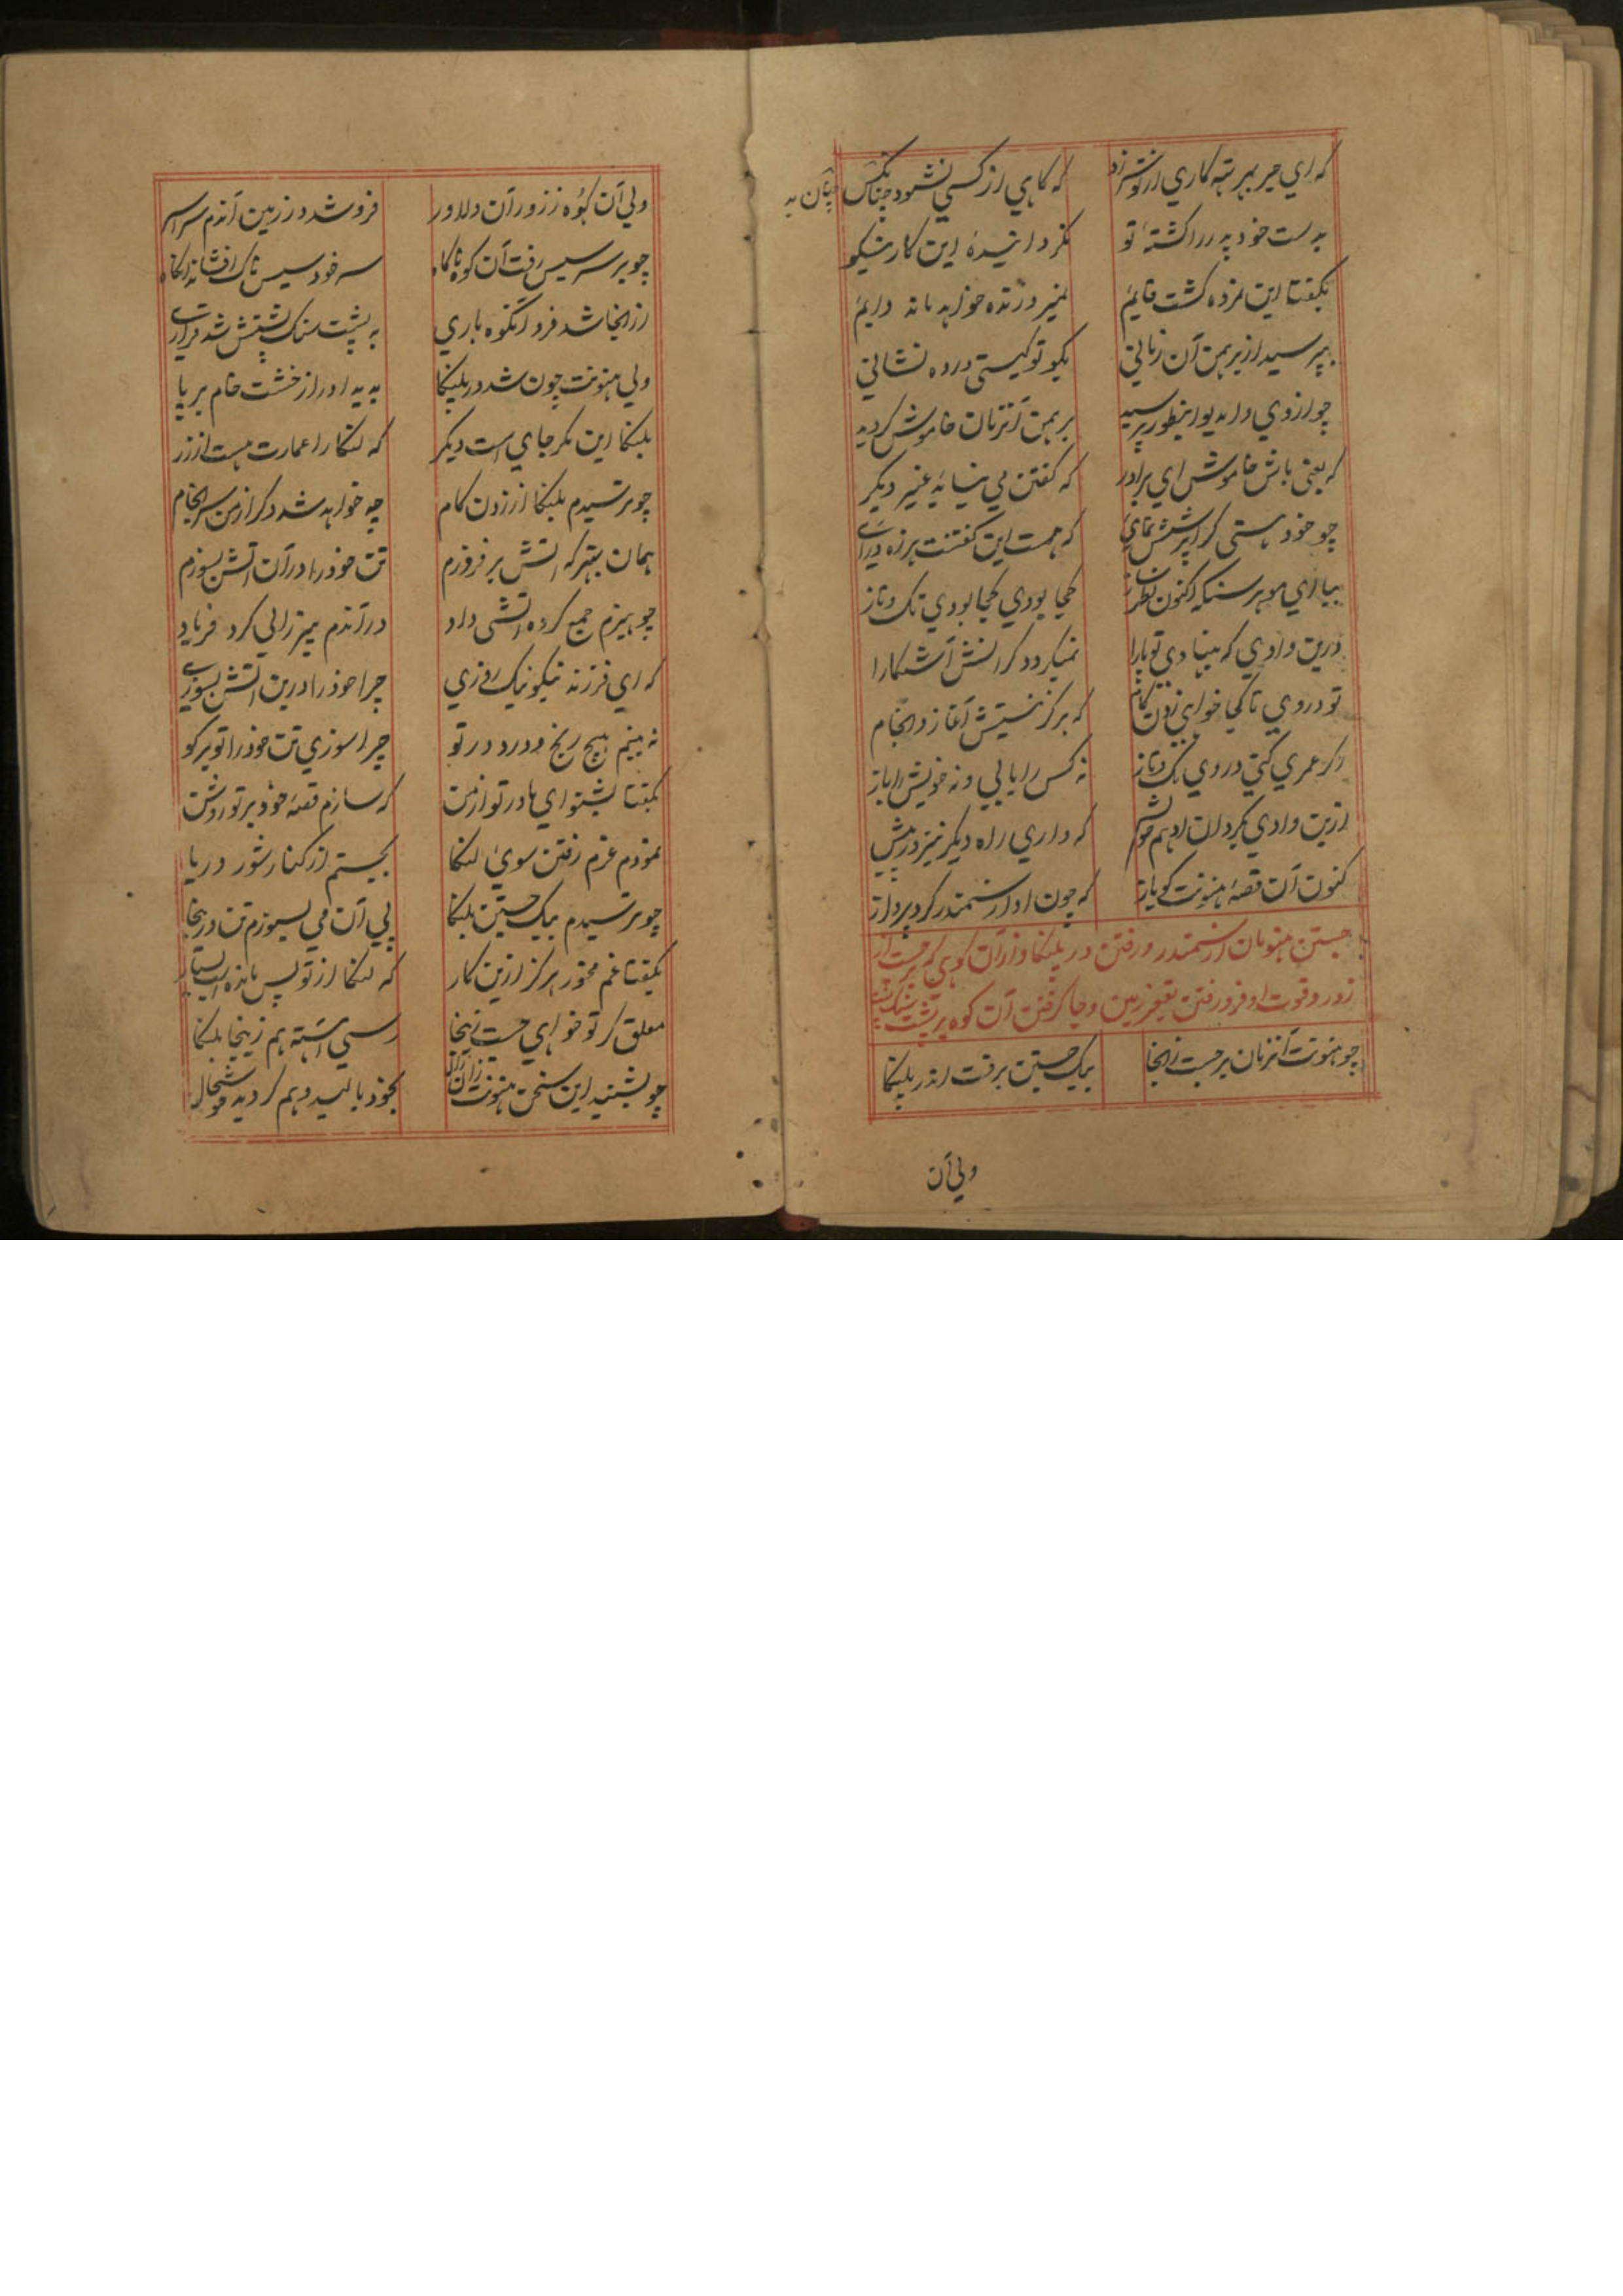 که ای جیر ببرشته کاری از تو شد زاد که گاهی از کسی نشود چنان
بدست خود پدر را کشتهٔ تو نگردانیدهٔ این کار نیکو
بگفتا این نمرده گشت قایم نمیرد زنده خواهد ماند دایم
بپرسید از برهمن آن زمانی بگو تو کیستی در ده نشانی
چو از وی رامدیو اینطور پرسید برهمن آنزمان خاموش گردید
که یعنی باش خاموش ای برادر که گفتن می نیاید غیر دیگر
چو خود هستی کرا پرسش نمای که هست این گفتنت هرزه درای
بیا ای موبر سنکه اکنون نظر باز کجا بودی کجا بودی تک و تاز
درین وادی که بنهادی تو پا را نمیگردد کرانش آشکارا
تو در وی تا کجا خواهی زدن کام که هرگز نیستش آغاز و انجام
اگر عمری کنی در وی تک و تاز نه کس را یابی و نه خویش را باز
ازین وادی بگردان ادهم خویش که داری راه دیگر نیز در پیش
کنون آن قصهٔ هنونت گو باز که چون او از سمندر کرد پرواز
جستن هنومان از سمندر و رفتن در پلنکا و از آن کوهی که برجست از
زور و قوت او فرو رفتن بقعر زمین و جا گرفتن آن کوه بر پشت سنک پشت
چو هنونت آنزمان برجست زانجا بیک جستن برفت اندر پلنکا
ولی آن
ولی آن کوه ز زور آن دلاور فرو شد در زمین آندم سراسر
چو بر سر سیس رفت آن کوه ناگاه سر خود سیس ناک افشاند آنگاه
از انجا شد فرو آنکوه باری به پشت سنک پشتش شد قراری
ولی هنونت چون شد در پلنکا بدید او را از خشت خام برپا
پلنکا این مگر جای است دیگر که لنکا را عمارت هست از زر
چو ترسیدم پلنکا از زدن کام چه خواهد شد دگر از من سرانجام
همان بهتر که آتش برفروزم تن خود را در آن آتش بسوزم
چو هیزم جمع کرده آتشی داد در آندم پیرزالی کرد فریاد
که ای فرزند نیکو نیک روزی چرا خود را درین آتش بسوزی
نه بینم هیچ رنج و درد در تو چرا سوزی تن خود را تو برگو
بگفتا بشنو ای مادر تو از من که سازم قصهٔ خود بر تو روشن
نمودم عزم رفتن سوی لنکا بجستم از کنار شور دریا
چو ترسیدم بیک جستن پلنکا پی آن می بسوزم تن در ینجا
بگفتا غم مخور هرگز ازین کار که لنکا از تو پس مانده است
معلق گر تو خواهی جست زینجا رسی آهسته هم زینجا پلنکا
چو بشنید این سخن هنونت زان زال بخود بالید و هم گردید خوشحال